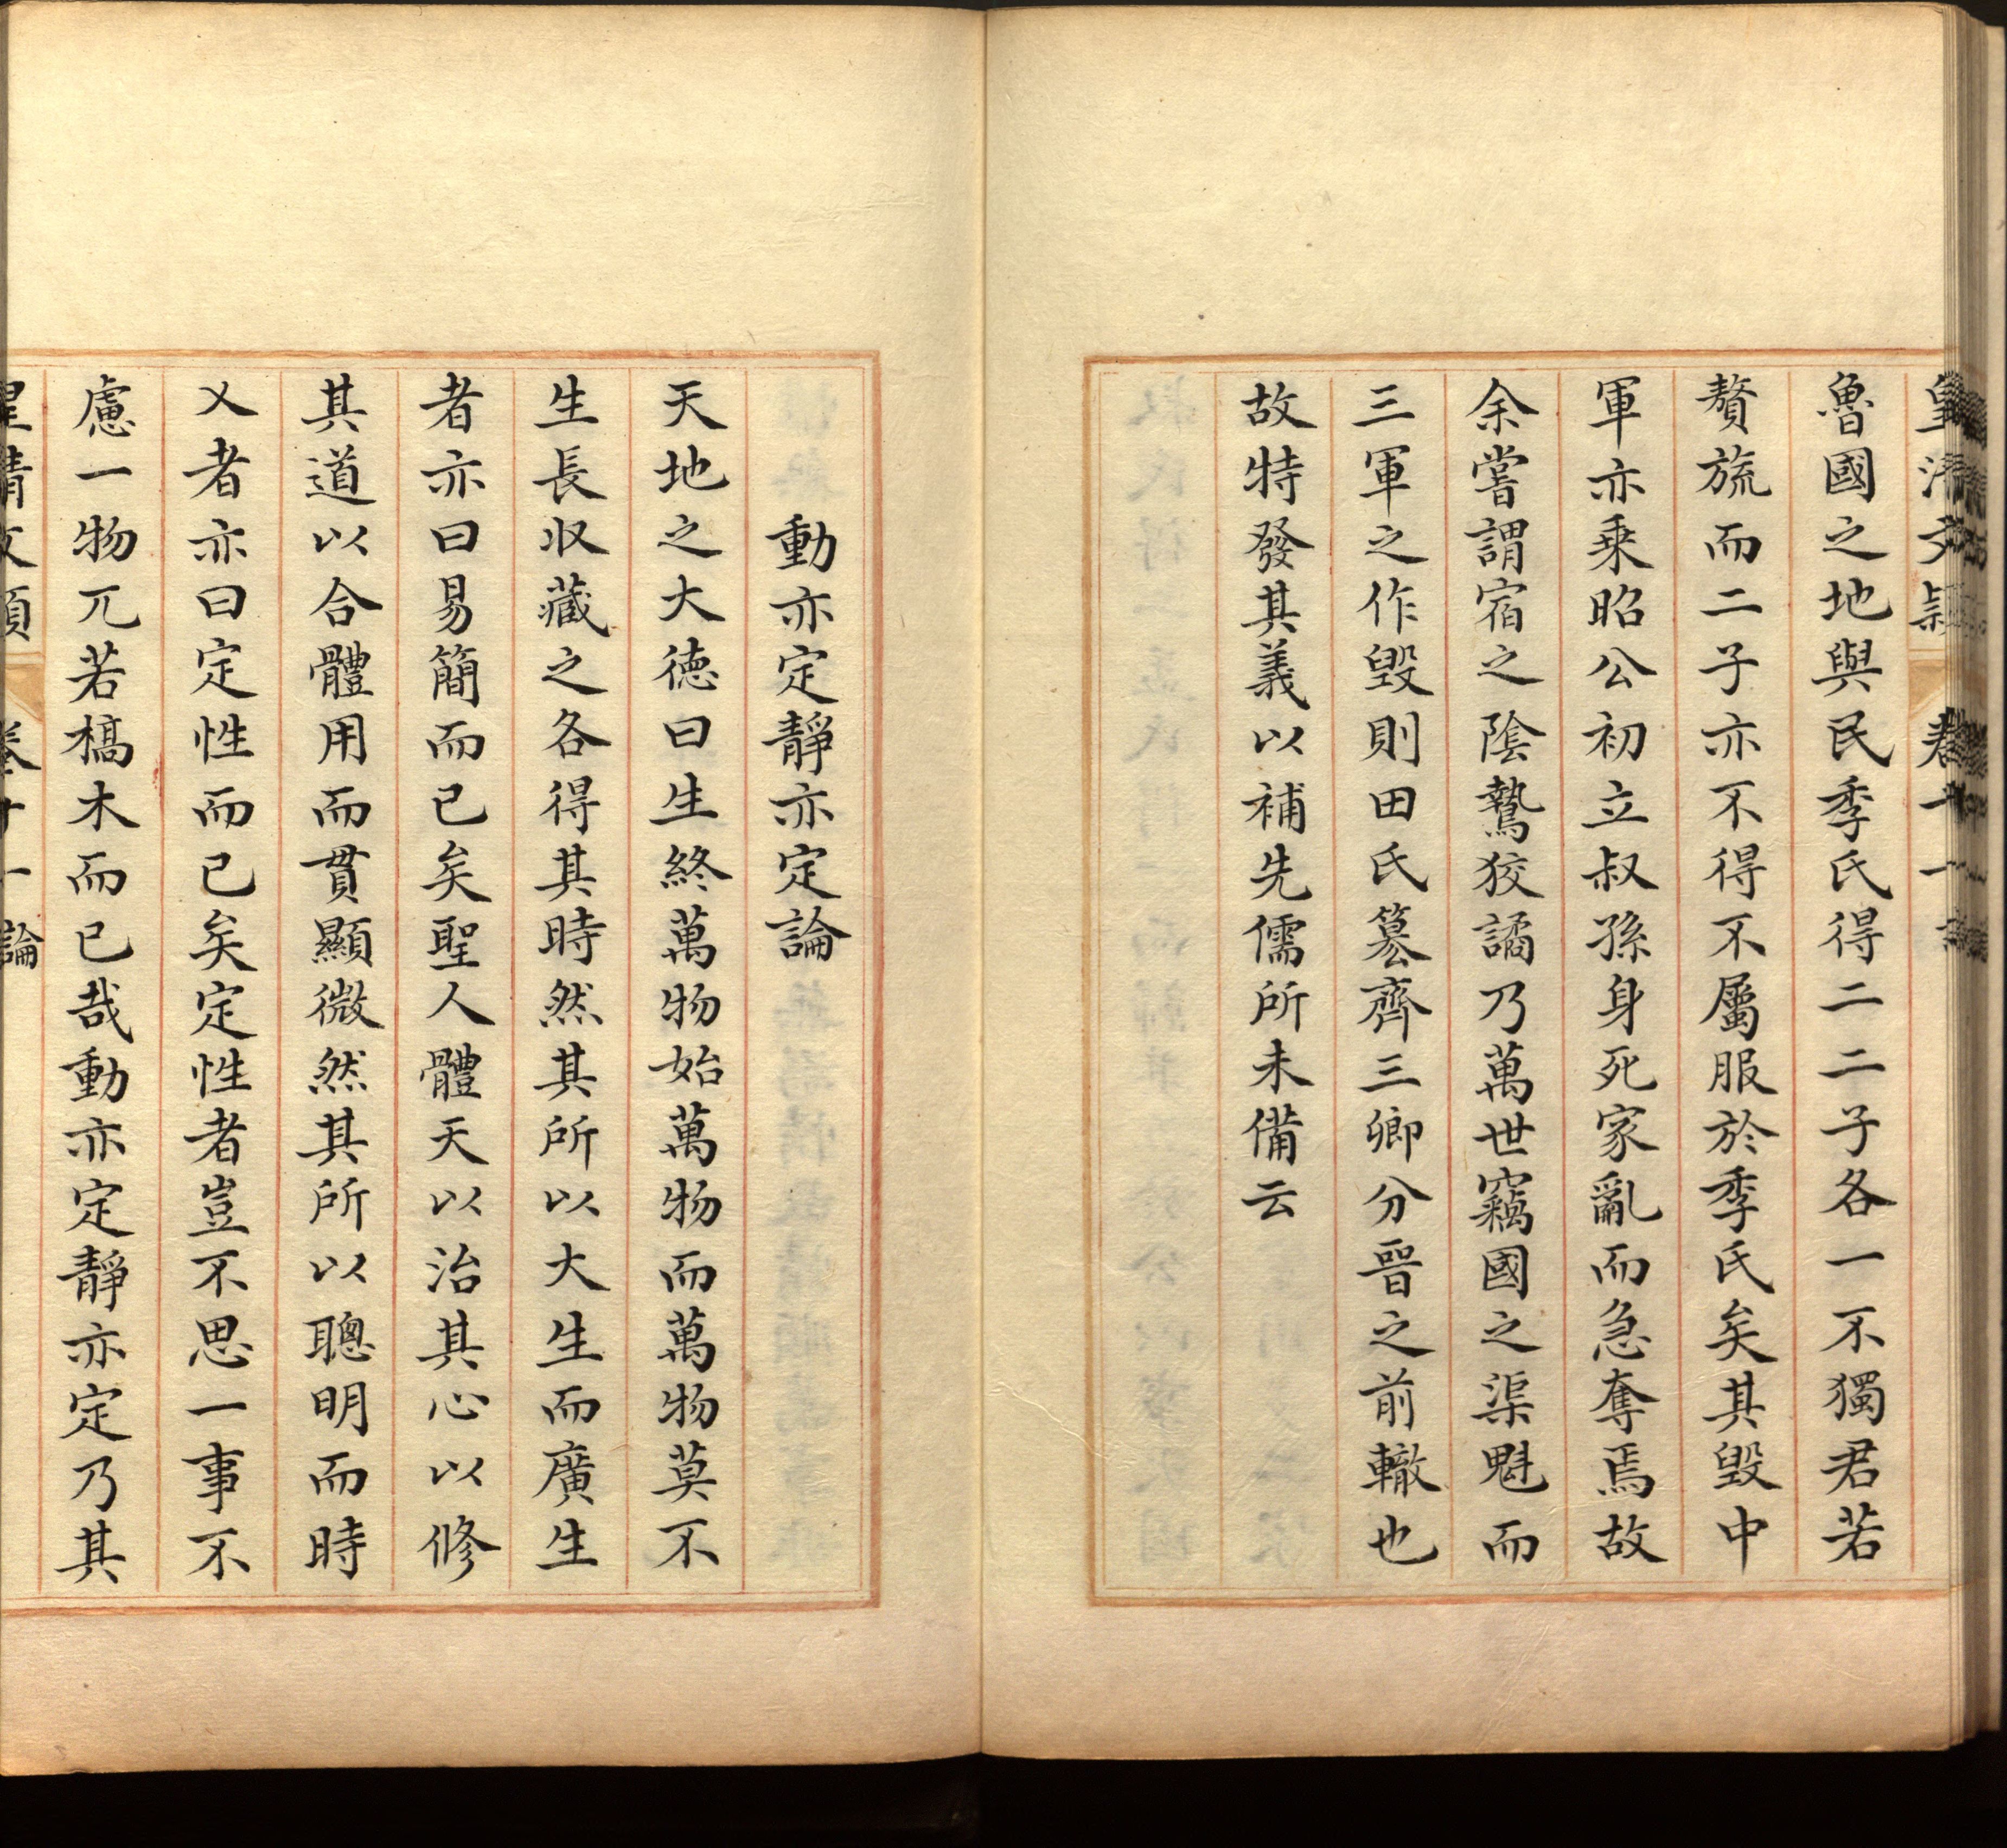 皇清文穎 卷十一 論
魯國之地與民季氏得二二子各一不獨君若
贅旒而二子亦不得不屬服於季氏矣其毀中
軍亦乗昭公初立叔孫身死家亂而急奪焉故
余嘗謂宿之陰鷙狡譎乃萬世竊國之渠魁而
三軍之作毀則田氏簒齊三卿分晉之前轍也
故特發其義以補先儒所未備云
動亦定靜亦定論
天地之大徳曰生終萬物始萬物而萬物莫不
生長収藏之各得其時然其所以大生而廣生
者亦曰易簡而已矣聖人體天以治其心以修
其道以合體用而貫顯微然其所以聰明而時
乂者亦曰定性而已矣定性者豈不思一事不
慮一物兀若槁木而已哉動亦定靜亦定乃其
皇清文穎 卷十一 論